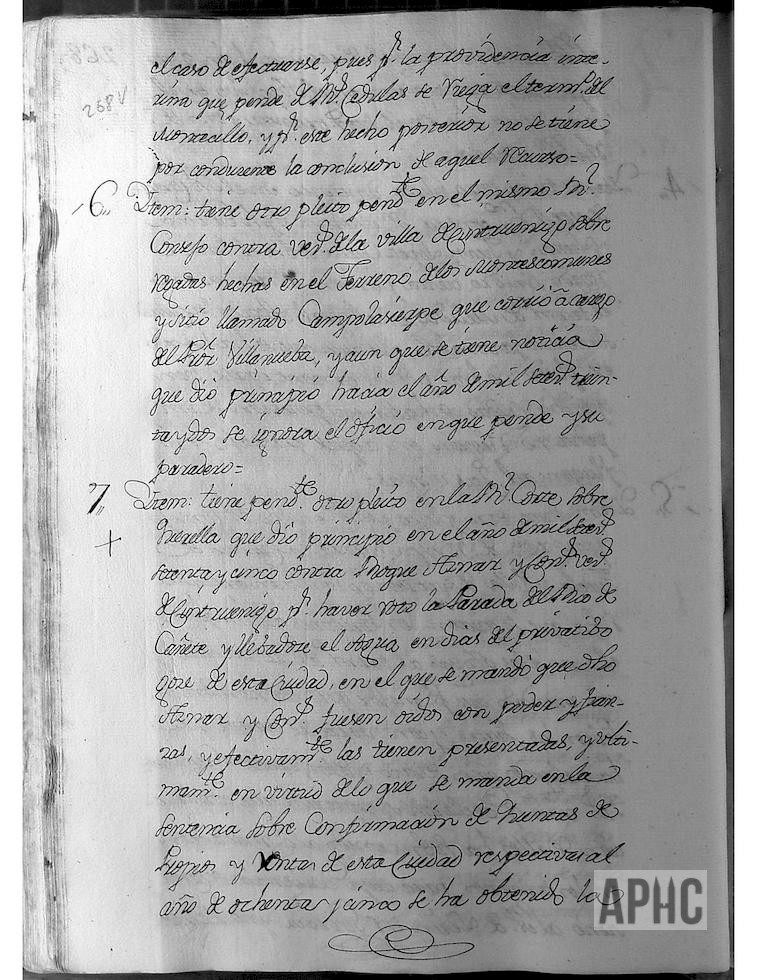 268v
el caso de efectuarse, pues pr. la providencia inte-
rina que pende de Rs. Cedulas se riega el termno. del
Montecillo, y pr. este hecho posterior no se tiene
por conducente la conclusion de aquel recurso=
6,, Item: tiene otro pleito pendte. en el mismo Rl.
Consejo contra vecs. de la villa de Cintruenigo sobre
regadas hechas en el Terreno de los Montes comunes
y sitio llamado Campolasierpe que corrió à cargo
del Procr. Villanueba, y aun que se tiene noticia
que dió principio hacia el año de mil setecs. trein-
ta y dos se ignora el oficio en que pende y su
paradero=
7,, Item: tiene pendte. otro pleito en la Rl. Corte sobre
+ querella que dió principio en el año de mil setecs.
setenta y cinco contra Roque Aznar y Cons. vecs.
de Cintruenigo pr. haver roto la Parada del Rio de
Cañete y llebadose el Agua en dias del privatibo
goze de esta Ciudad, en el que se mandó que dho
Aznar y Cons. fuesen oidos con poder y fian-
zas, y efectivamte. las tienen presentadas, y ulti-
mamte. en virtud de lo que se manda en la
sentencia sobre Confirmación de quentas de
Propios y Rentas de esta Ciudad respectivas al
año de ochenta y cinco se ha obtenido la
APHC